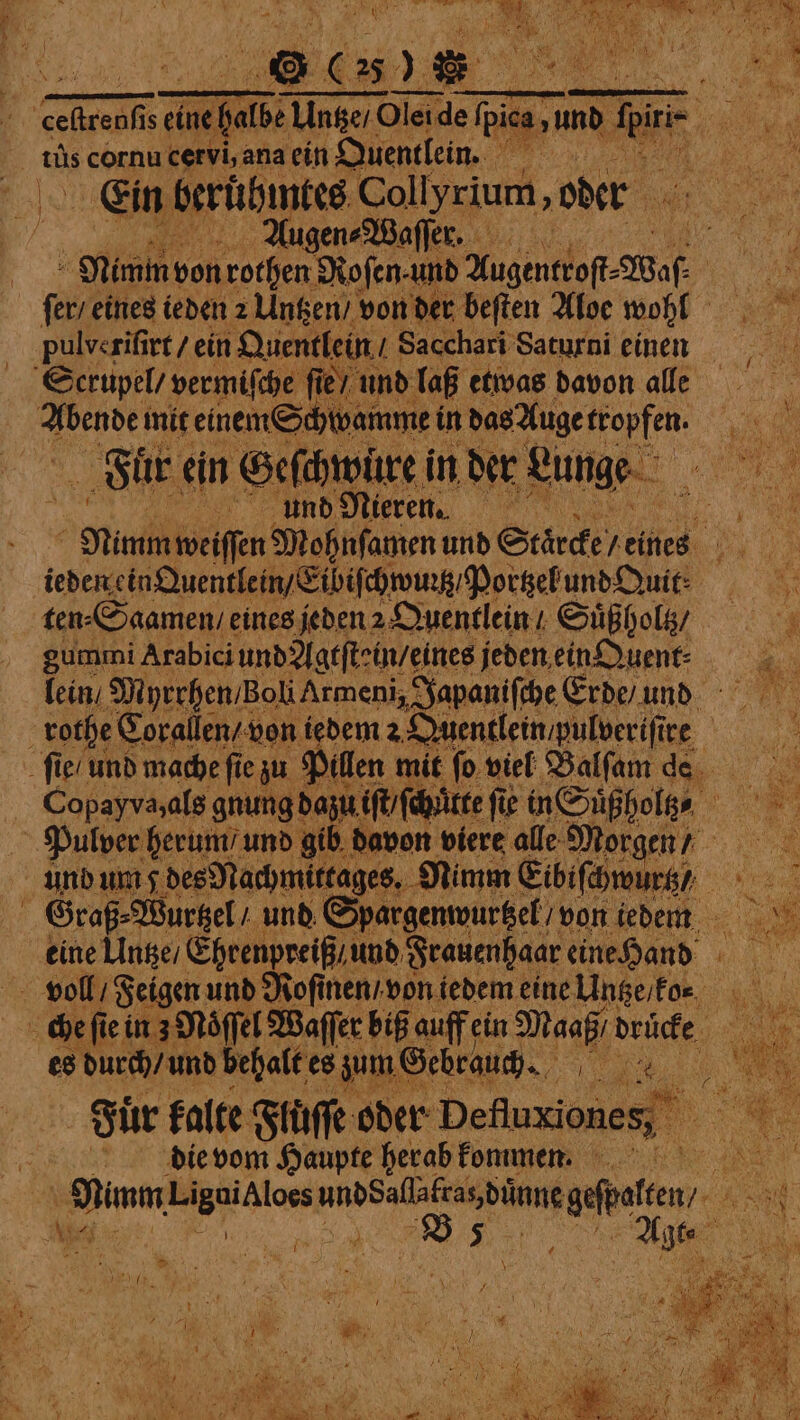 ( 25 )
ceſtrenſis eine halbe Untze/ Olei de ſpica, und ſpiri-
tûs cornu cervi, ana ein Quentlein.
Ein beruͤhmtes Collyrium, oder
Augen-Waſſer.
Nimm von rothen Roſen-und Augentroſt-Waſ-
ſer/ eines ieden 2 Untzen/ von der beſten Aloe wohl
pulveriſirt / ein Quentlein / Sacchari Saturni einen
Scrupel/ vermiſche ſie / und laß etwas davon alle
Abende mit einem Schwamme in das Auge tropfen.
Fuͤr ein Geſchwuͤre in der Lunge
und Nieren.
Nimm weiſſen Mohnſamen und Staͤrcke / eines
ieden ein Quentlein/ Eibiſchwurtz/ Portzel und Quit-
ten-Saamen/ eines jeden 2 Quentlein / Suͤßholtz/
gummi Arabici und Agtſtein/ eines jeden ein Quent-
lein/ Myrrhen/ Boli Armeni, Japaniſche Erde/ und
rothe Corallen/ von iedem 2 Quentlein/ pulveriſire
ſie/ und mache ſie zu Pillen mit ſo viel Balſam de
Copayva, als gnung dazu iſt/ ſchuͤtte ſie in Suͤßholtz-
Pulver herum/ und gib davon viere alle Morgen /
und um 5 des Nachmittages. Nimm Eibiſchwurtz/
Graß-Wurtzel / und Spargenwurtzel / von iedem
eine Untze/ Ehrenpreiß/ und Frauenhaar eine Hand
voll / Feigen und Roſinen/ von iedem eine Untze/ ko-
che ſie in 3 Noͤſſel Waſſer biß auff ein Maaß/ druͤcke
es durch/ und behalt es zum Gebrauch.
Fuͤr kalte Fluͤſſe oder Defluxiones,
die vom Haupte herab kommen.
Nimm Ligni Aloes und Saſſafras, duͤnne geſpalten /
B 5 Agt-